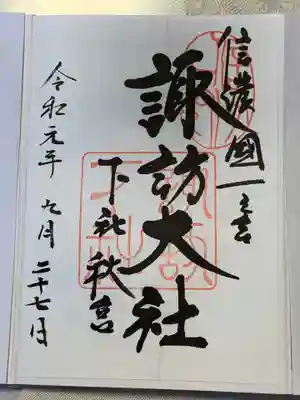 信濃國一之宮
諏訪大社
下社秋宮
令和元年九月二十七日